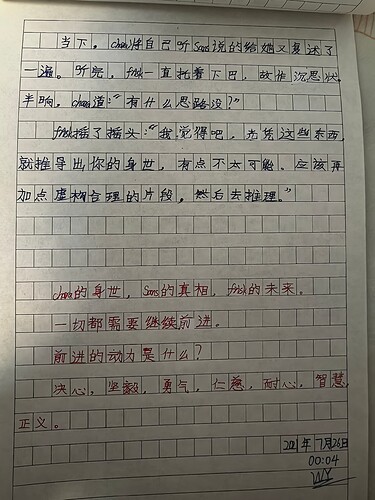 当下。chara将自己听Sans说的给她又复述了
一遍。听完，frisk一直托着下巴，故作沉思状。
半晌。chara道：“有什么思路没？”
frisk摇了摇头：“我觉得吧，光凭这些东西，
就推导出你的身世，有点不太可能。应该再
加点虚构合理的片段，然后去推理。”
chara的身世，Sans的真相，frisk的未来。
一切都需要继续前进。
前进的动力是什么？
决心，坚毅，勇气，仁慈，耐心，智慧，
正义。
2021年7月26日
00:04
WY